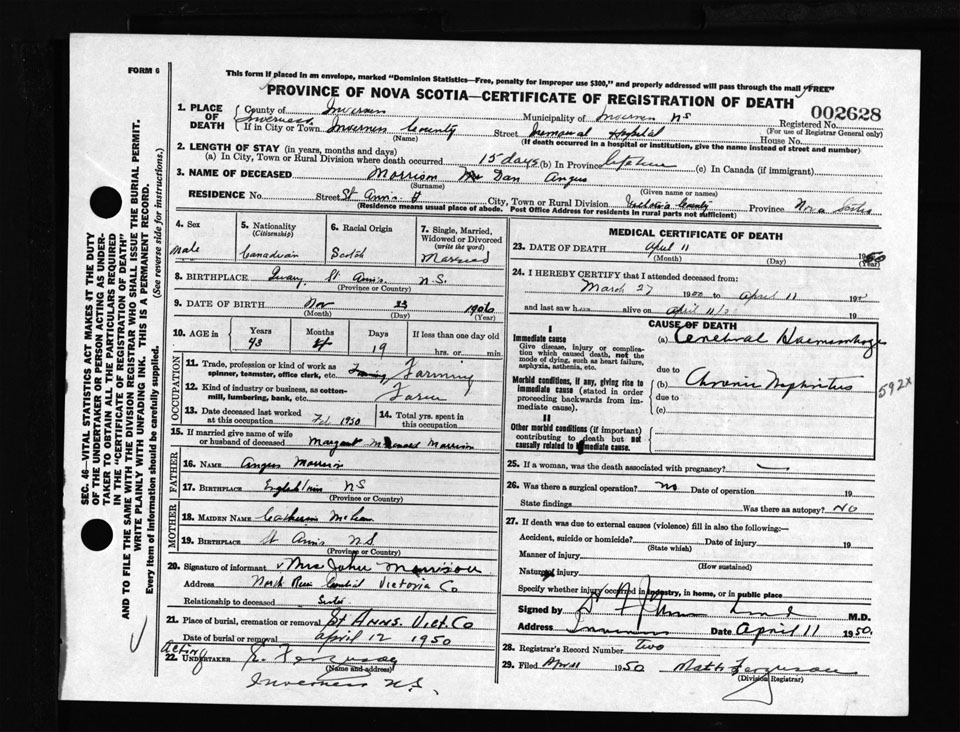 FORM 6
This form if placed in an envelope, marked "Dominion Statistics—Free, penalty for improper use $300," and properly addressed will pass through the mail "FREE"
PROVINCE OF NOVA SCOTIA—CERTIFICATE OF REGISTRATION OF DEATH
002628
1. PLACE OF DEATH
County of Inverness Municipality of Inverness NS Registered No.
(For use of Registrar General only)
Inverness
If in City or Town Inverness County Street Memorial Hospital House No.
(Name) (If death occurred in a hospital or institution, give the name instead of street and number)
2. LENGTH OF STAY (in years, months and days)
(a) In City, Town or Rural Division where death occurred 15 days (b) In Province lifetime (c) In Canada (if immigrant)
3. NAME OF DECEASED Morrison Dan Angus
(Surname) (Given name or names)
RESIDENCE No. Street St Anns City, Town or Rural Division Victoria County Province Nova Scotia
(Residence means usual place of abode. Post Office Address for residents in rural parts not sufficient)
4. Sex
Male
5. Nationality (Citizenship)
Canadian
6. Racial Origin
Scotch
7. Single, Married, Widowed or Divorced (write the word)
Married
8. BIRTHPLACE St. Anns N.S.
(Province or Country)
9. DATE OF BIRTH Nov 23 1906
(Month) (Day) (Year)
10. AGE in
Years Months Days If less than one day old
43 19 hrs. or min.
OCCUPATION
11. Trade, profession or kind of work as spinner, teamster, office clerk, etc. Farming
12. Kind of industry or business, as cotton-mill, lumbering, bank, etc. Farm
13. Date deceased last worked at this occupation Feb 1950
14. Total yrs. spent in this occupation
15. If married give name of wife or husband of deceased Margaret Morrison
FATHER
16. NAME Angus Morrison
17. BIRTHPLACE Englishtown NS
(Province or Country)
MOTHER
18. MAIDEN NAME Catherine McLean
19. BIRTHPLACE St Anns N.S.
(Province or Country)
20. Signature of informant Mrs John Morrison
Address North River Victoria Co
Relationship to deceased Sister
21. Place of burial, cremation or removal St Anns. Vict. Co
Date of burial or removal April 12 1950
Acting
22. UNDERTAKER Ferguson
(Name and address)
Inverness N.S.
MEDICAL CERTIFICATE OF DEATH
23. DATE OF DEATH April 11 1950
(Month) (Day) (Year)
24. I HEREBY CERTIFY that I attended deceased from:
March 27 1950 to April 11 195
and last saw h alive on April 11 19
CAUSE OF DEATH
I
Immediate cause
Give disease, injury or complication which caused death, not the mode of dying, such as heart failure, asphyxia, asthenia, etc.
(a) Cerebral Haemorrhage
due to
Morbid conditions, if any, giving rise to immediate cause (stated in order proceeding backwards from immediate cause).
(b) Chronic Nephritis
592X
due to
(c)
II
Other morbid conditions (if important) contributing to death but not causally related to immediate cause.
25. If a woman, was the death associated with pregnancy?
26. Was there a surgical operation? no Date of operation 19
State findings Was there an autopsy? NO
27. If death was due to external causes (violence) fill in also the following:—
Accident, suicide or homicide? Date of injury 19
(State which)
Manner of injury
(How sustained)
Nature of injury
Specify whether injury occurred in industry, in home, or in public place
Signed by M.D.
Address Inverness Date April 11 1950.
28. Registrar's Record Number Two
29. Filed April 11 1950 Matt Ferguson
(Division Registrar)
SEC. 46—VITAL STATISTICS ACT MAKES IT THE DUTY
OF THE UNDERTAKER OR PERSON ACTING AS UNDER-
TAKER TO OBTAIN ALL THE PARTICULARS REQUIRED
IN THE "CERTIFICATE OF REGISTRATION OF DEATH"
AND TO FILE THE SAME WITH THE DIVISION REGISTRAR WHO SHALL ISSUE THE BURIAL PERMIT.
WRITE PLAINLY WITH UNFADING INK. THIS IS A PERMANENT RECORD.
Every item of information should be carefully supplied. (See reverse side for instructions.)